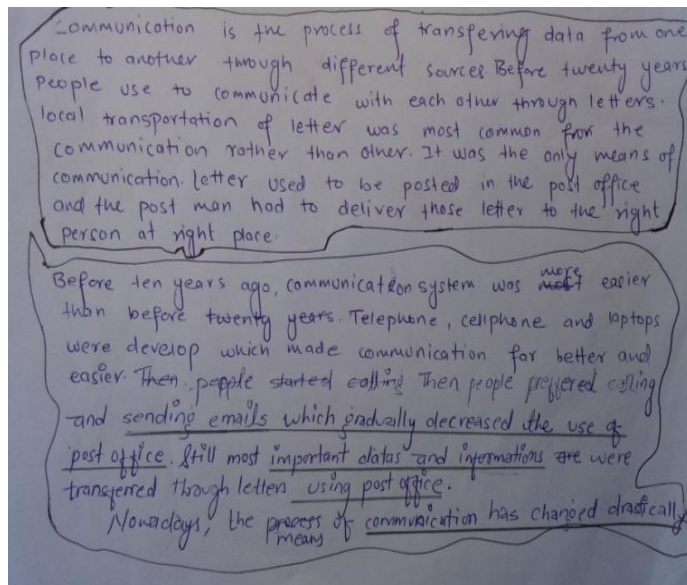 Communication is the process of transfering data from one
place to another through different sources. Before twenty years
People use to communicate with each other through letters.
local transportation of letter was most common from the
communication rather than other. It was the only means of
communication. Letter used to be posted in the post office
and the post man had to deliver those letter to the right
person at right place.
Before ten years ago, communication system was more easier
than before twenty years. Telephone, cellphone and laptops
were develop which made communication far better and
easier. Then people started calling Then people preffered calling
and sending emails which gradually decreased the use of
post office. Still most important datas and informations are were
transferred through letters using post office.
Nowadays, the process of communication has changed drastically
means